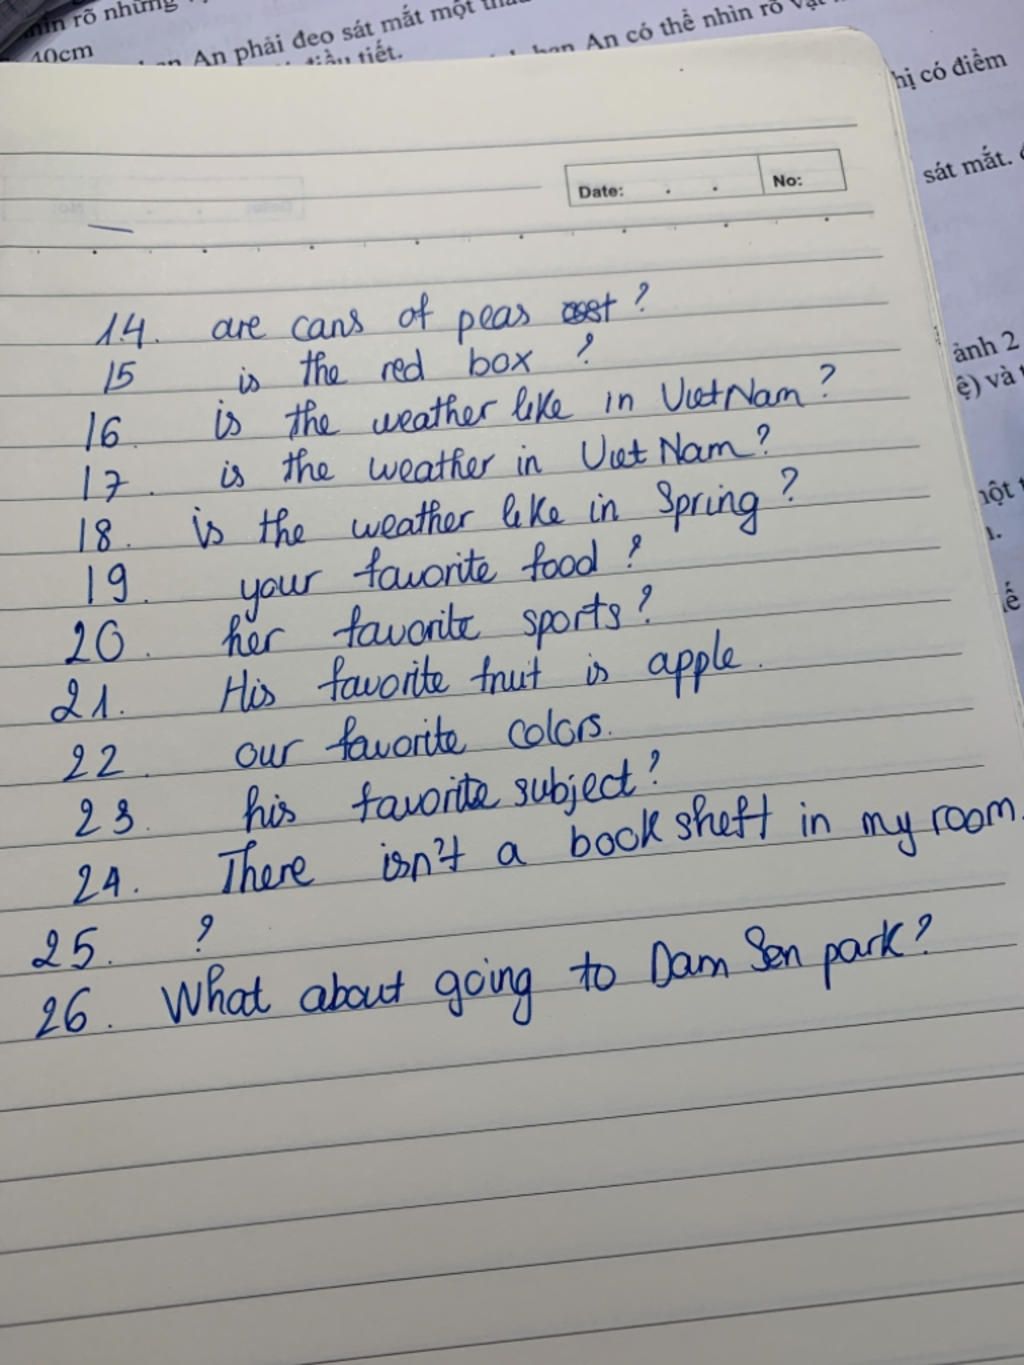 nhìn rõ những
40cm
An phải đeo sát mắt một
điều tiết.
An có thể nhìn rõ
hị có điểm
sát mắt.
ảnh 2
ệ) và
một
Date: . . No:
14. are cans of peas cost ?
15 is the red box ?
16. is the weather like in VietNam ?
17. is the weather in Viet Nam ?
18. is the weather like in Spring ?
19. your favorite food ?
20. her favorite sports ?
21. His favorite fruit is apple.
22. our favorite colors.
23. his favorite subject ?
24. There isn't a book sheft in my room.
25. ?
26. What about going to Dam Sen park ?